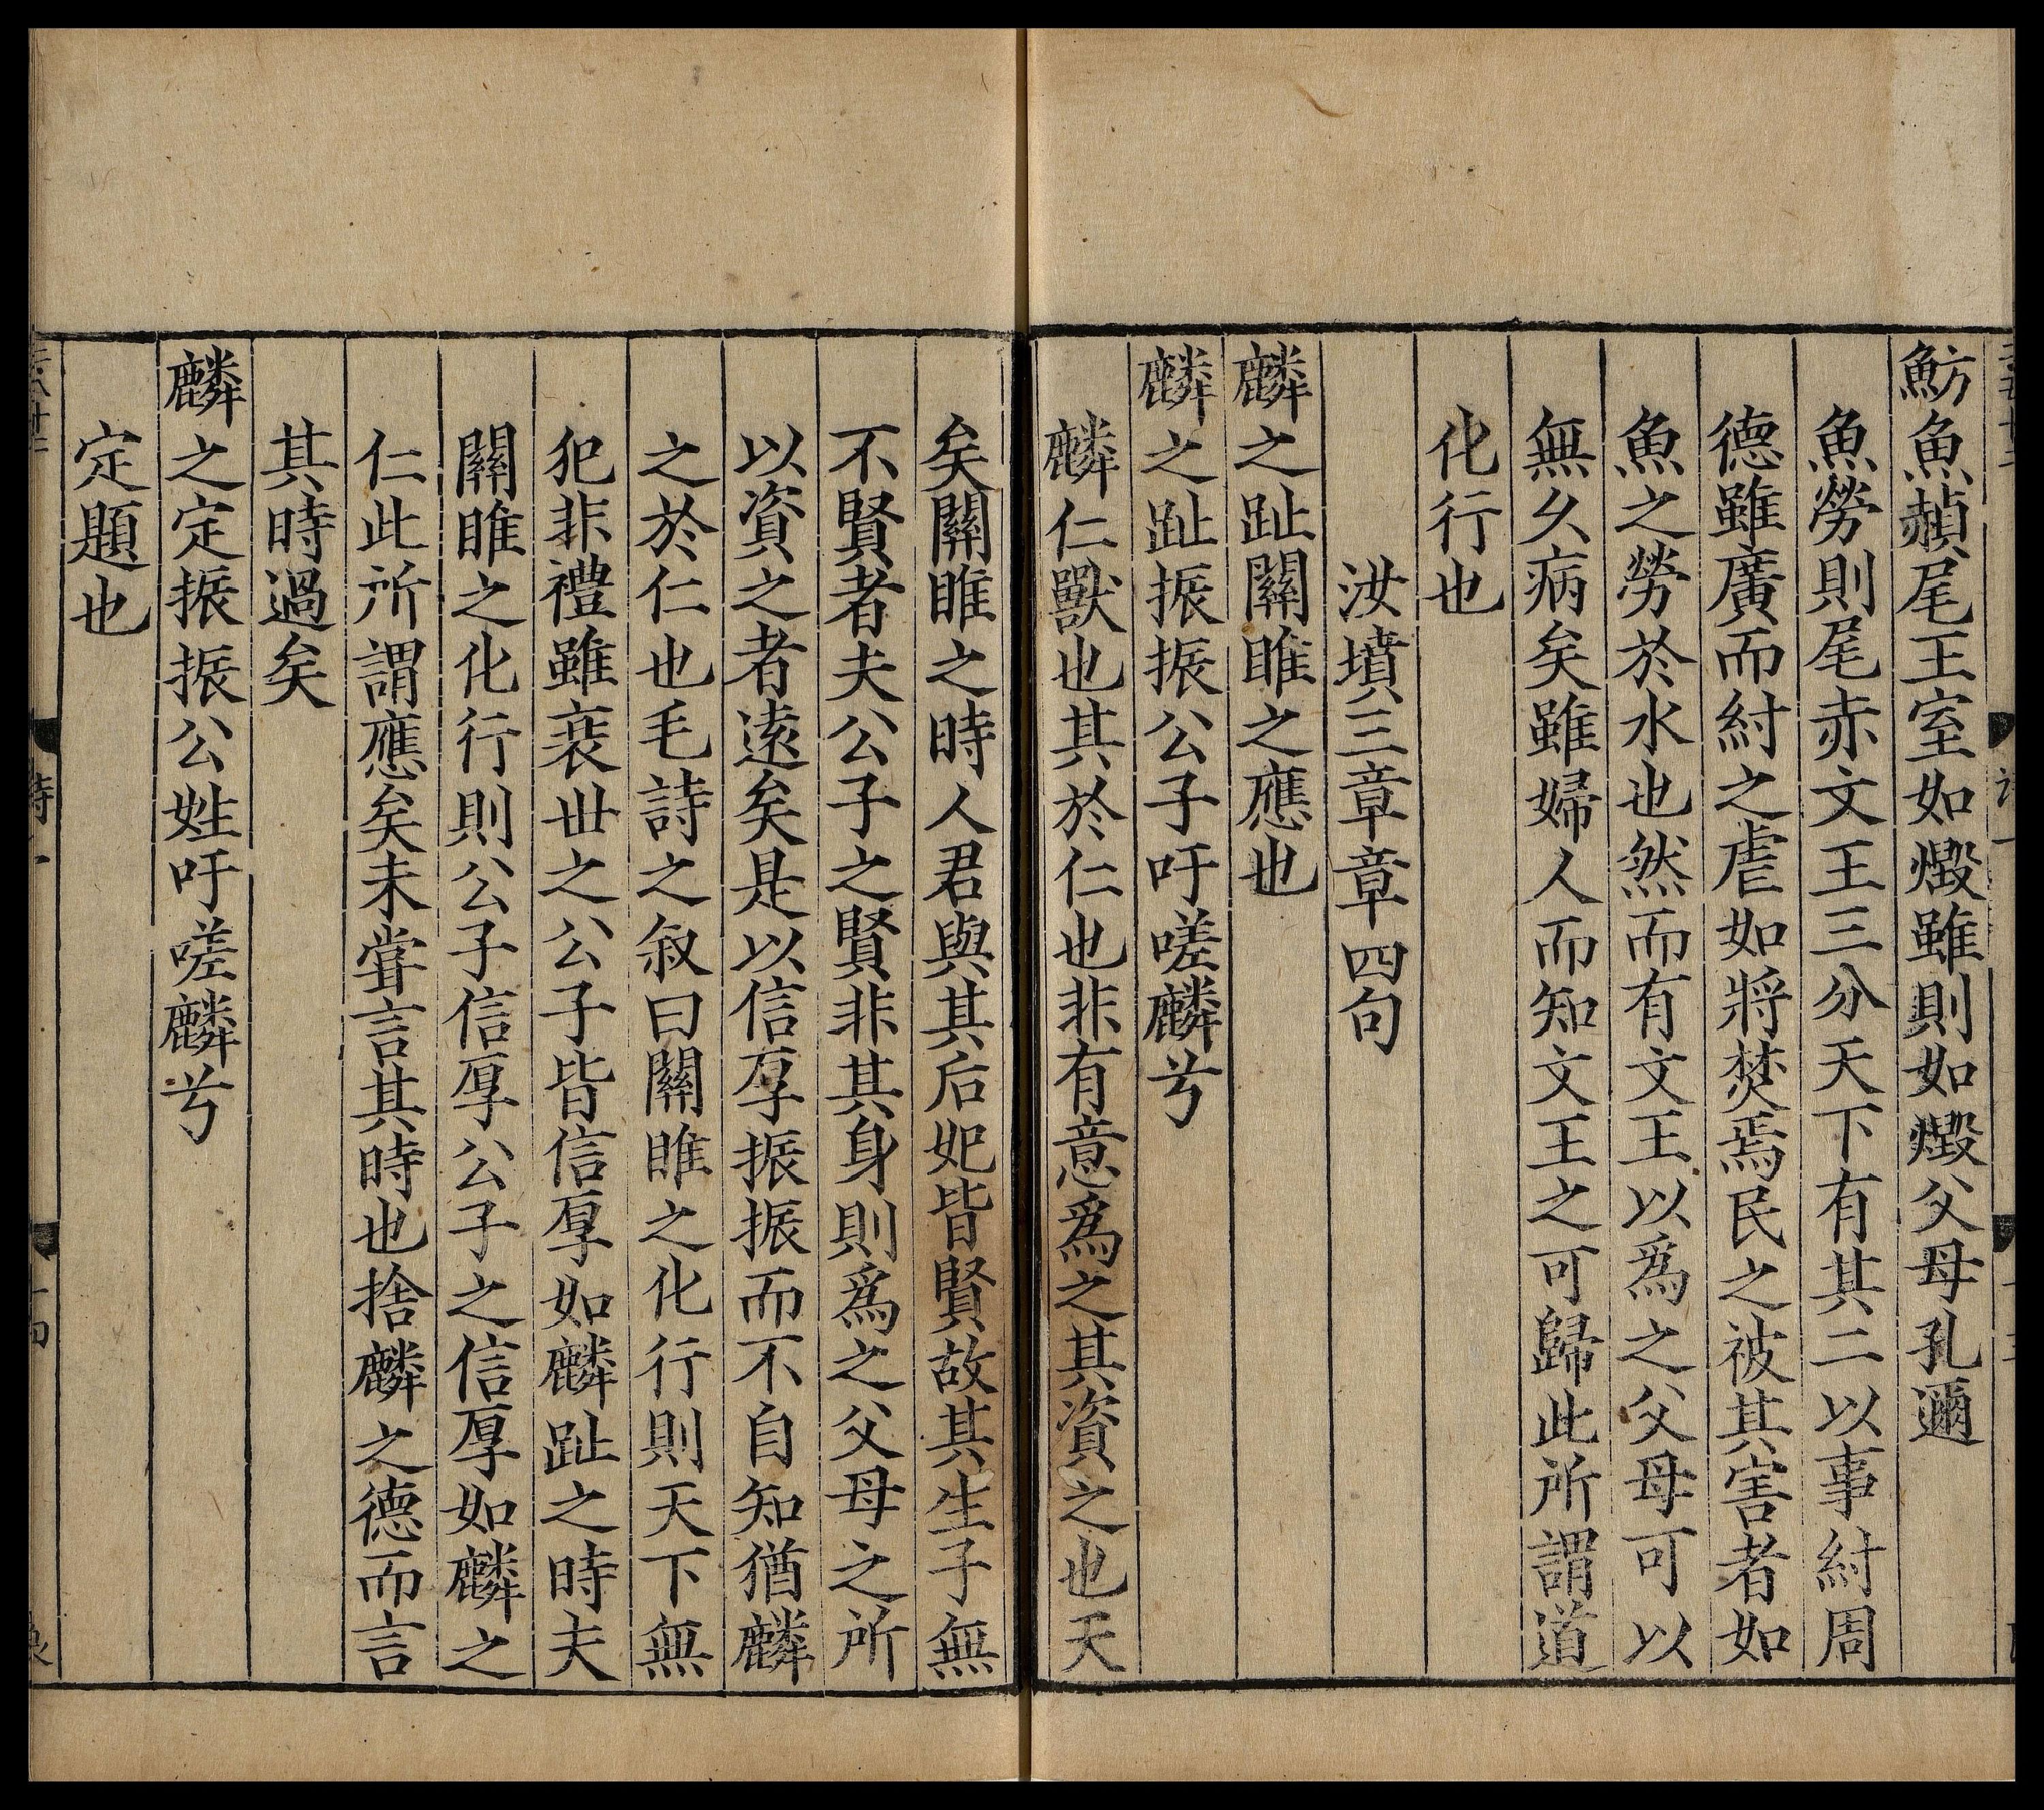 魴魚赬尾王室如燬雖則如燬父母孔邇
魚勞則尾赤文王三分天下有其二以事紂周
德雖廣而紂之虐如將焚焉民之被其害者如
魚之勞於水也然而有文王以為之父母可以
無久病矣雖婦人而知文王之可歸此所謂道
化行也
汝墳三章章四句
麟之趾關雎之應也
麟之趾振振公子吁嗟麟兮
麟仁獸也其於仁也非有意為之其資之也天
矣關雎之時人君與其后妃皆賢故其生子無
不賢者夫公子之賢非其身則為之父母之所
以資之者遠矣是以信厚振振而不自知猶麟
之於仁也毛詩之叙曰關雎之化行則天下無
犯非禮雖衰世之公子皆信厚如麟趾之時夫
關雎之化行則公子信厚公子之信厚如麟之
仁此所謂應矣未嘗言其時也捨麟之德而言
其時過矣
麟之定振振公姓吁嗟麟兮
定題也